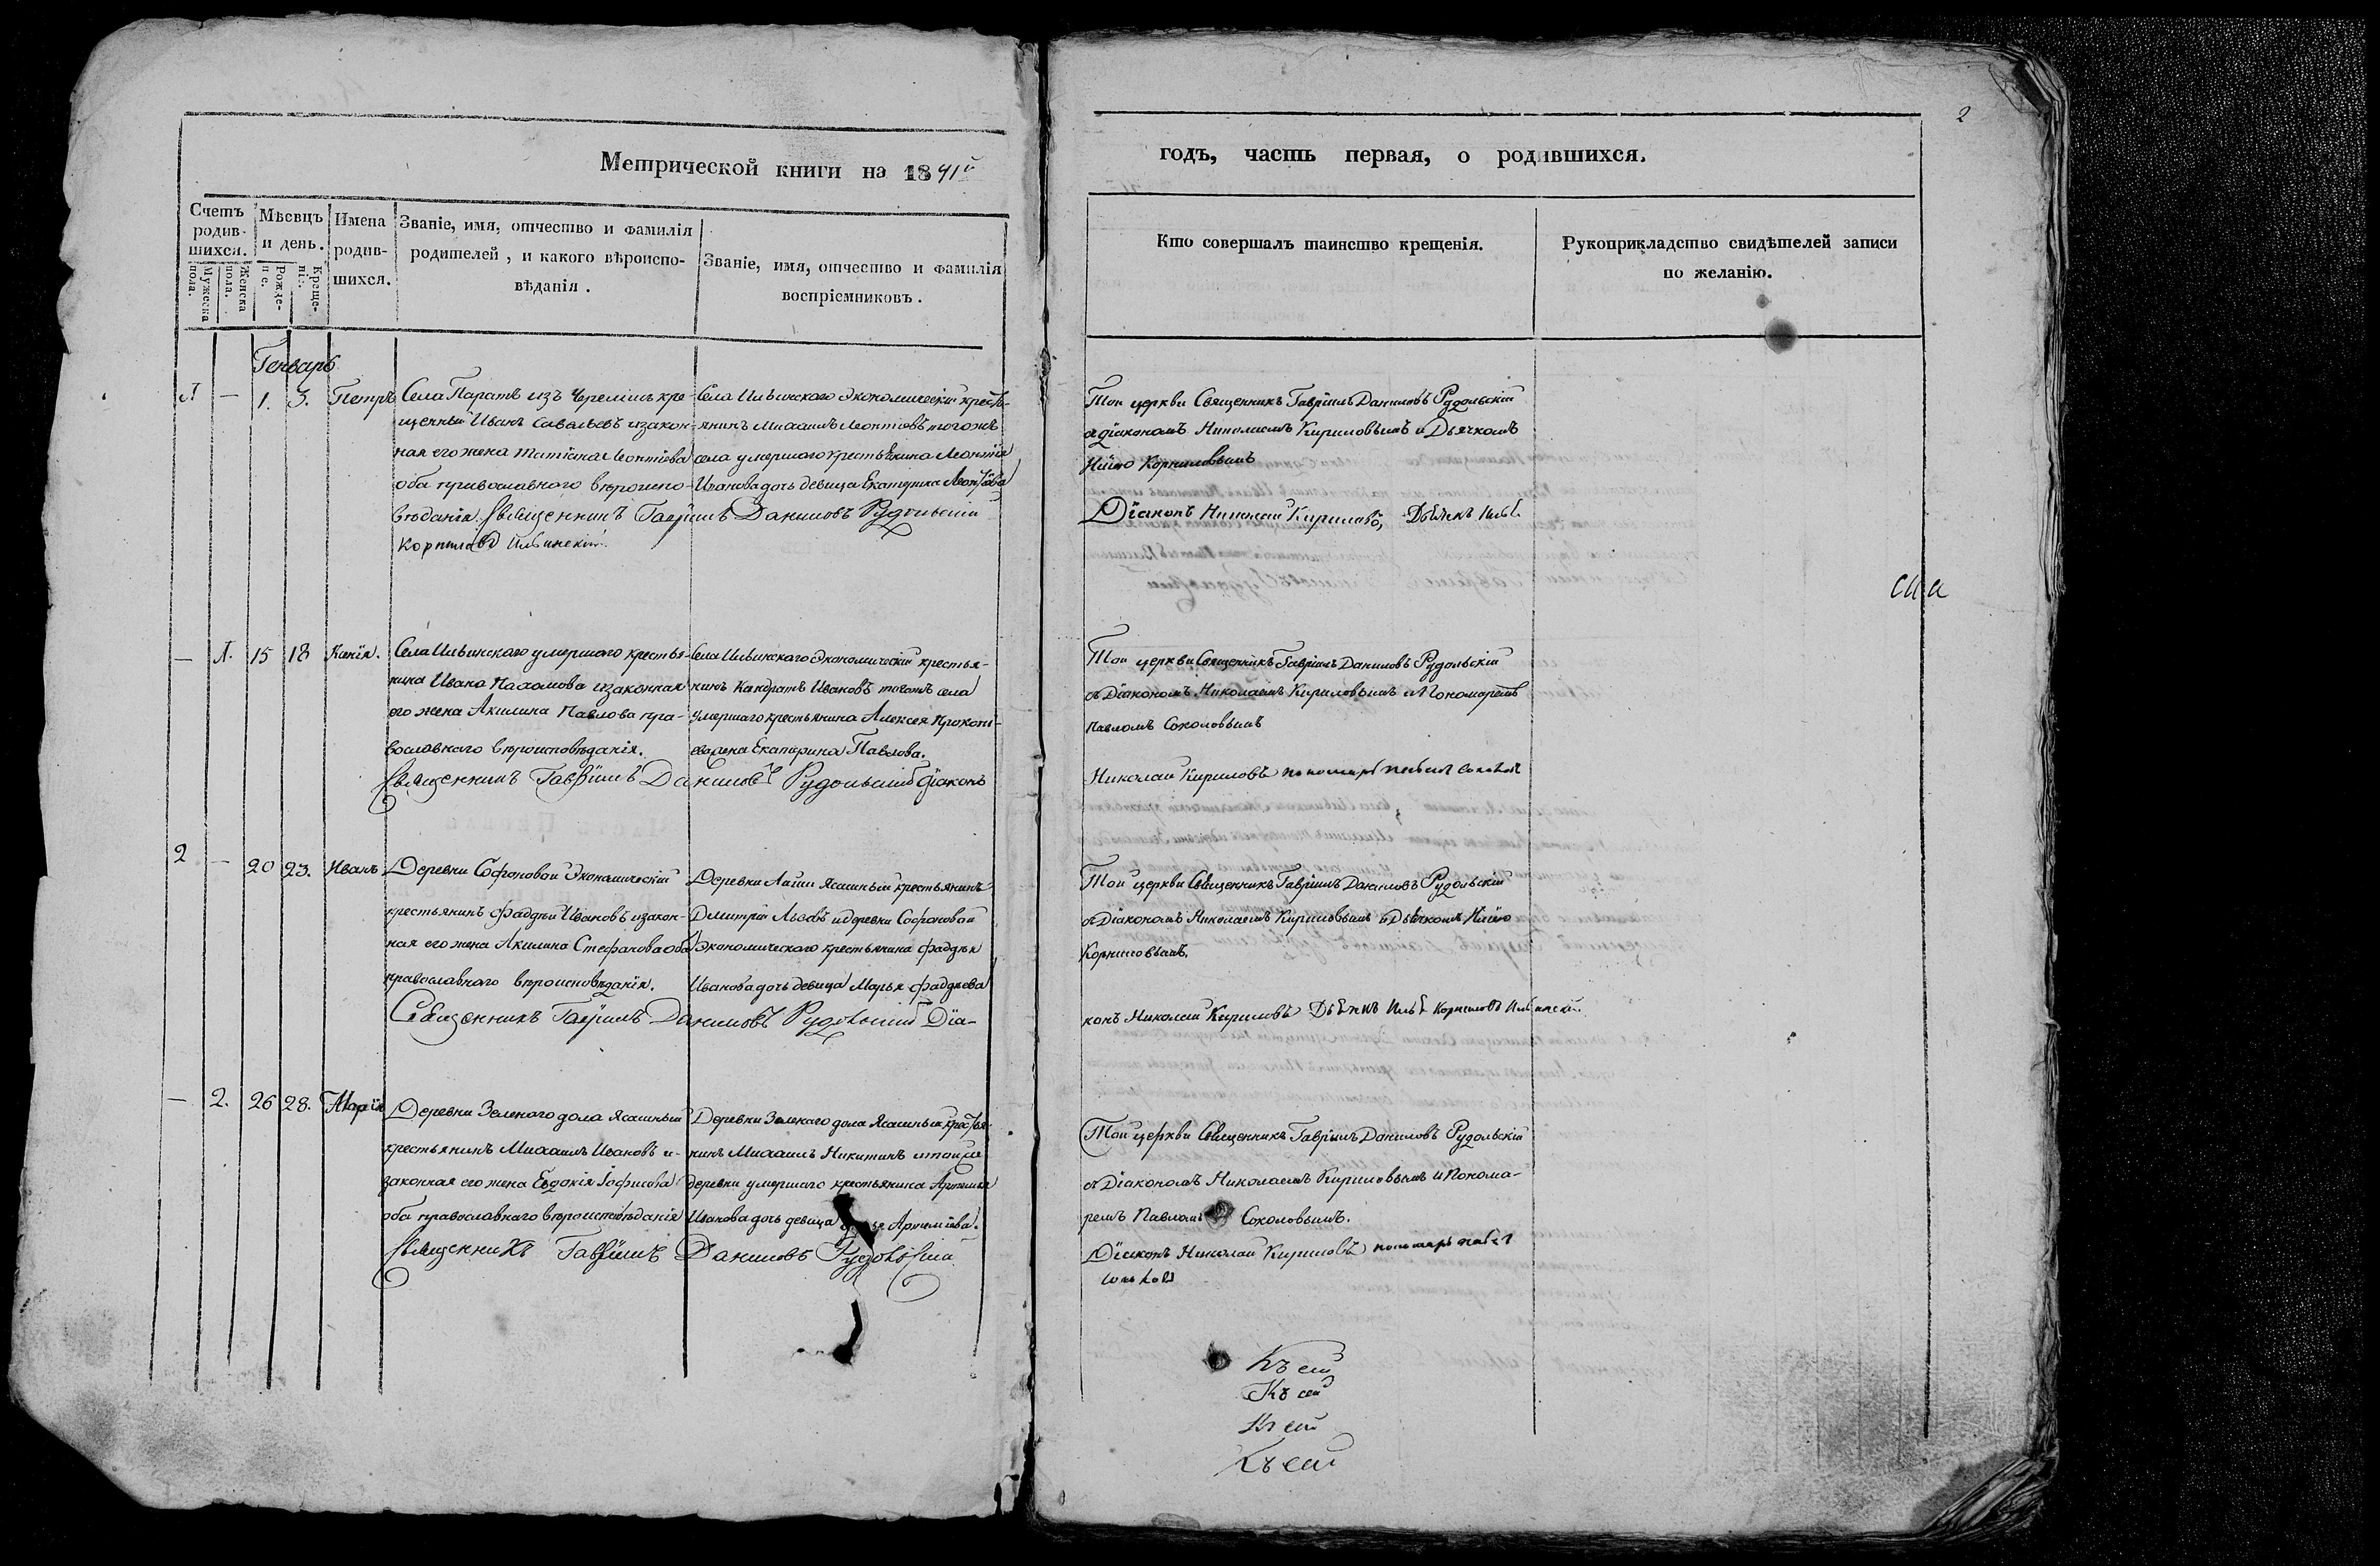 Метрической книги на 1841й
годъ, часть первая, о родившихся.
2
Счетъ родив-шихся.
Мѣсяцъ и день.
Имена родив-шихся.
Званіе, имя, отчество и фамилія
родителей, и какого вѣроиспо-
вѣданія.
Званіе, имя, отчество и фамилія
воспріемниковъ.
Кто совершалъ таинство крещенія.
Рукоприкладство свидѣтелей записи
по желанію.
Мужеска пола.
Женска пола.
Рожде-
Креще-
Генварь
1 — 1. 3. Петръ
Села Паратъ изъ Черемисъ кре-
щенный Иванъ Савельевъ изакон-
ная его жена Татіана Леонтіева
оба православнаго вѣроиспо-
вѣданія. Священникъ Гавріилъ Даниловъ Рудольскій
Корниловъ Ильинскій
Села Ильинскаго Экономическій кресть-
янинъ Михаилъ Леонтіевъ тогожъ
села умершаго крестьянина Леонтія
Иванова дочь девица Екатерина Леонтіева
Той церкви Священникъ Гавріилъ Даниловъ Рудольскій
съ діакономъ Николаемъ Кириловымъ и Дьячкомъ
Ильею Корниловымъ
Діаконъ Николай Кириловъ, Дьячекъ Илья
— 1. 15 18 Ксенія.
Села Ильинскаго умершаго крестья-
нина Ивана Пахомова изаконная
его жена Акилина Павлова пра-
вославнаго вѣроисповѣданія.
Священникъ Гавріилъ Даниловъ Рудольскій Діаконъ
Села Ильинскаго Экономическій крестья-
нинъ Кандратъ Ивановъ тогожъ села
умершаго крестьянина Алексея Прокопь-
ева жена Екатерина Павлова.
Той церкви Священникъ Гавріилъ Даниловъ Рудольскій
съ Діакономъ Николаемъ Кириловымъ и Пономаремъ
Павломъ Соколовымъ
Николай Кириловъ пономарь Павелъ Соколовъ
2 — 20 23. Иванъ
Деревни Софоновой Экономическій
крестьянинъ Фаддѣй Ивановъ изакон-
ная его жена Акилина Стефанова оба
православнаго вѣроисповѣданія.
Священникъ Гавріилъ Даниловъ Рудольскій Діа-
Деревни Ясашный крестьянинъ
Димитрій Львовъ идеревни Софоновой
Экономическаго крестьянина Фаддѣя
Иванова дочь девица Марья Фаддѣева
Той церкви Священникъ Гавріилъ Даниловъ Рудольскій
съ Діакономъ Николаемъ Кириловымъ и Дьячкомъ Ильею
Корниловымъ.
конъ Николай Кириловъ Дьячекъ Илья Корниловъ Ильинскій
— 2. 26 28. Марія
Деревни Зеленаго дола Ясашный
крестьянинъ Михаилъ Ивановъ и-
законная его жена Евдокія
оба православнаго вѣроисповѣданія
Священникъ Гавріилъ Даниловъ Рудольскій
Деревни Зеленаго дола Ясашный крестья-
нинъ Михаилъ Никитинъ итойже
деревни умершаго крестьянина Артемія
Иванова дочь девица Артеміева.
Той церкви Священникъ Гавріилъ Даниловъ Рудольскій
съ Діакономъ Николаемъ Кириловымъ и Понома-
ремъ Павломъ Соколовымъ.
Діаконъ Николай Кириловъ пономарь Павелъ
Соколовъ
Къ сей
Къ сей
Къ сей
Къ сей